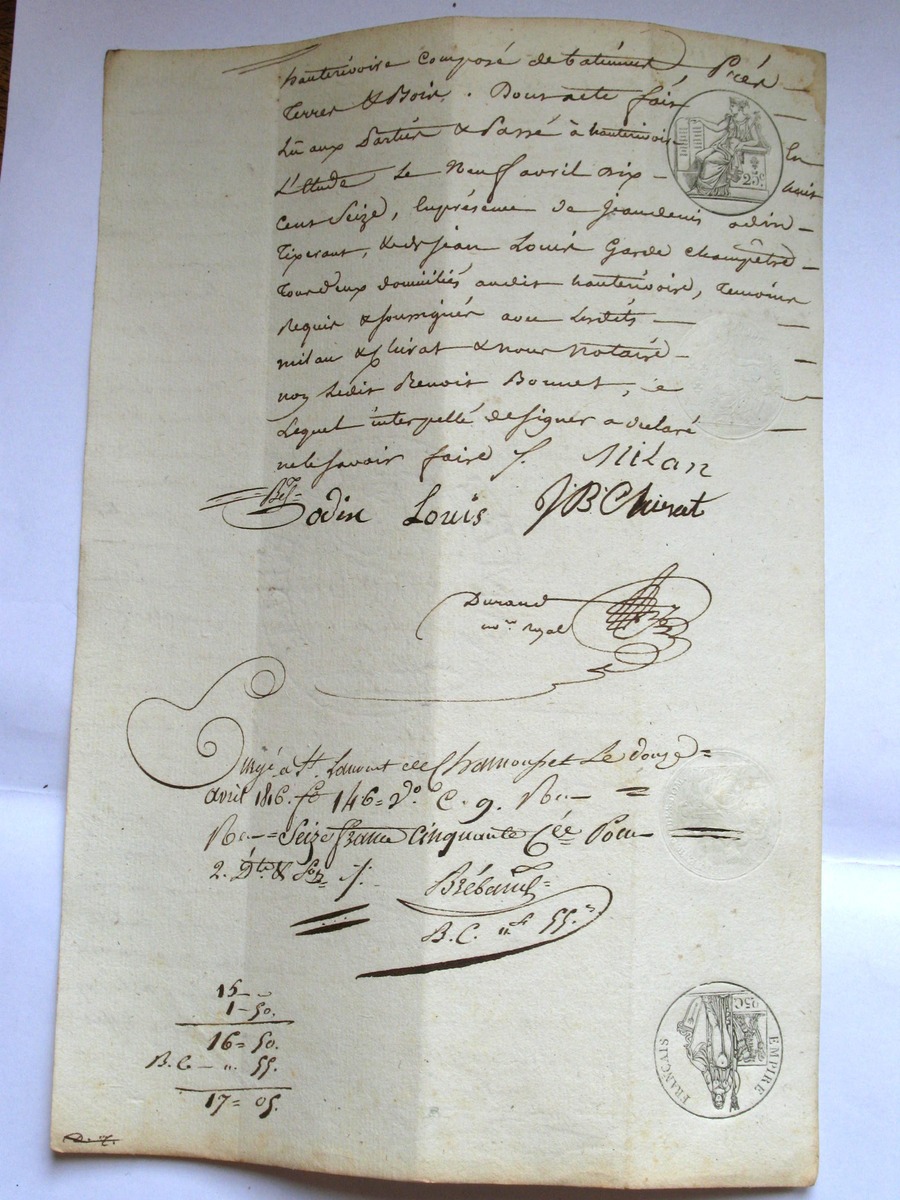 hauterivoire Composé de batiments Prés
Terres & Bois. Dont acte fait
Lu aux Parties & Passé à hauterivoire En
L'Etude Le Neuf avril dix huit
Cent Seize, En présence de Jean denis odin
Tixerant, & de Jean Louis Garde Champêtre
Tous deux domiciliés audit hauterivoire, Temoins
Requis & soussignés avec Lesdits
milan & Chirat & nous Notaire
non Ledit Benoit Bonnet, ce
Lequel interpellé de signer a declaré
ne le Savoir faire /. Milan
odin Louis JB Chirat
Durand
no.re royal
25c.
à St. Laurent de Chamousset Le douze
avril 1816. fo 146 = Vo. C. 9.
Seize francs Cinquante Pour
2.
B.C. " f 55.
15 -
1 - 50.
16 = 50.
B.C - " 55.
17 = 05.
EMPIRE FRANÇAIS
25C